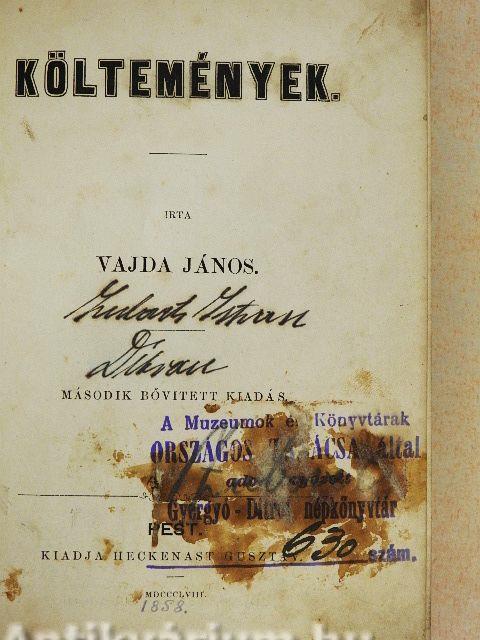 KÖLTEMÉNYEK.
IRTA
VAJDA JÁNOS.
István
MÁSODIK BŐVITETT KIADÁS.
A Muzeumok és Könyvtárak
ORSZÁGOS TANÁCSA által
Gyergyó-Ditrói népkönyvtár
PEST.
KIADJA HECKENAST GUSZTÁV.
630 szám.
MDCCCLVIII.
1858.
Antikvárium.hu